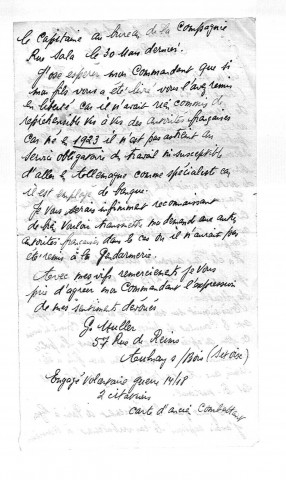 le Capitaine au bureau de la Compagnie
Rue Sala le 30 Mars dernier.
J'ose esperer mon Commandant que si
mon fils vous a été livré vous l'avez remis
en liberté car il n'avait rien commis de
repréhensible vis à vis des autorités françaises
car né en 1923 il n'est pas astreint au
service obligatoire du travail ni susceptible
d'aller en Allemagne comme spécialiste car
il est employé de banque.
Je vous serais infiniment reconnaissant
de bien vouloir transmettre ma demande aux autres
autorités françaises dans le cas où il n'aurait pas
été remis à la Gendarmerie.
Avec mes vifs remerciements je vous
prie d'agréer mon Commandant l'expression
de mes sentiments dévoués
G. Muller
57 Rue de Reims
Aulnay s/Bois (Set Oise)
Engagé volontaire guerre 14/18
2 citations
carte d'ancien Combattant